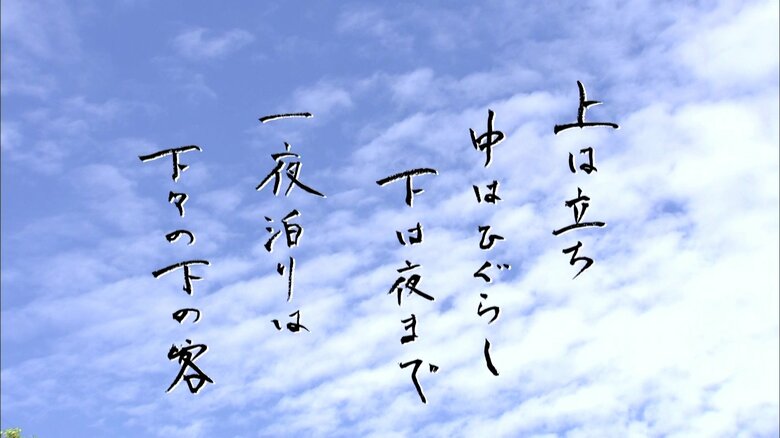 上は立ち
中はひぐらし
下は夜まで
一夜泊りは
下々の下の客